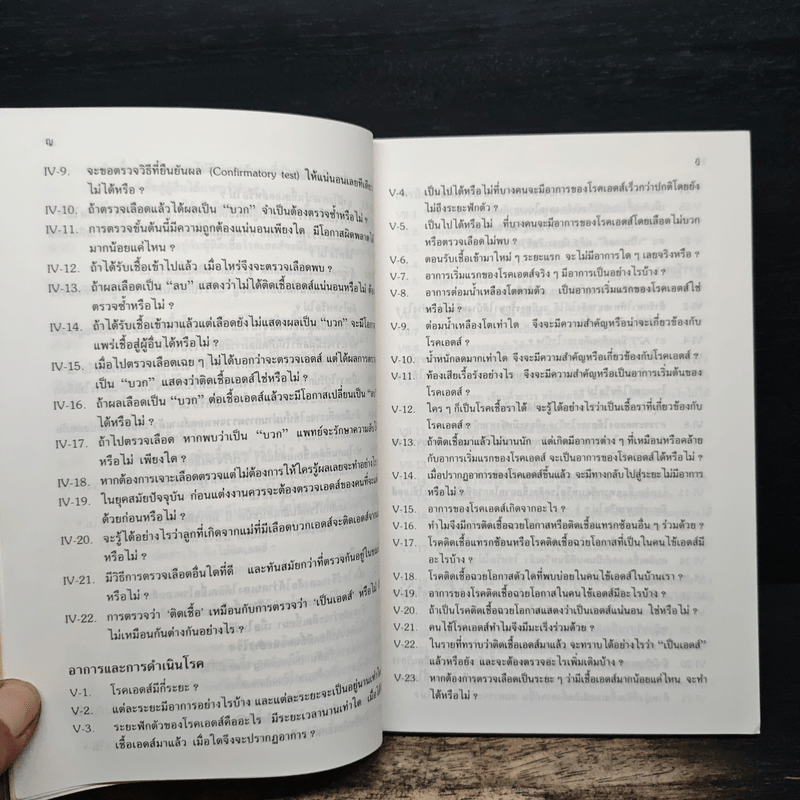 ญ
IV-9. จะขอตรวจวิธีที่ยืนยันผล (Confirmatory test) ให้แน่นอนเลยทีเดียว
ไม่ได้หรือ ?
IV-10. ถ้าตรวจเลือดแล้วได้ผลเป็น “บวก” จำเป็นต้องตรวจซ้ำหรือไม่ ?
IV-11. การตรวจขั้นต้นนี้มีความถูกต้องแน่นอนเพียงใด มีโอกาสผิดพลาดได้
มากน้อยแค่ไหน ?
IV-12. ถ้าได้รับเชื้อเข้าไปแล้ว เมื่อไหร่จึงจะตรวจเลือดพบ ?
IV-13. ถ้าผลเลือดเป็น “ลบ” แสดงว่าไม่ได้ติดเชื้อเอดส์แน่นอนหรือไม่ ต้อง
ตรวจซ้ำหรือไม่ ?
IV-14. ถ้าได้รับเชื้อเข้ามาแล้วแต่เลือดยังไม่แสดงผลเป็น “บวก” จะมีโอกาส
แพร่เชื้อสู่ผู้อื่นได้หรือไม่ ?
IV-15. เมื่อไปตรวจเลือดเฉย ๆ ไม่ได้บอกว่าจะตรวจเอดส์ แต่ได้ผลการตรวจ
เป็น “บวก” แสดงว่าติดเชื้อเอดส์ใช่หรือไม่ ?
IV-16. ถ้าผลเลือดเป็น “บวก” ต่อเชื้อเอดส์แล้วจะมีโอกาสเปลี่ยนเป็น “ลบ”
ได้หรือไม่ ?
IV-17. ถ้าไปตรวจเลือด หากพบว่าเป็น “บวก” แพทย์จะรักษาความลับ
หรือไม่ เพียงใด ?
IV-18. หากต้องการเจาะเลือดตรวจแต่ไม่ต้องการให้ใครรู้ผลเลยจะทำอย่างไร
IV-19. ในยุคสมัยปัจจุบัน ก่อนแต่งงานควรจะต้องตรวจเอดส์ของคนที่จะ
ด้วยก่อนหรือไม่ ?
IV-20. จะรู้ได้อย่างไรว่าลูกที่เกิดจากแม่ที่มีเลือดบวกเอดส์จะติดเอดส์จาก
หรือไม่ ?
IV-21. มีวิธีการตรวจเลือดอื่นใดที่ดี และทันสมัยกว่าที่ตรวจกันอยู่ใน
หรือไม่ ?
IV-22. การตรวจว่า ‘ติดเชื้อ’ เหมือนกับการตรวจว่า ‘เป็นเอดส์’ หรือไม่
ไม่เหมือนกันต่างกันอย่างไร ?
อาการและการดำเนินโรค
V-1. โรคเอดส์มีกี่ระยะ ?
V-2. แต่ละระยะมีอาการอย่างไรบ้าง และแต่ละระยะจะเป็นอยู่นานเท่าใด
V-3. ระยะฟักตัวของโรคเอดส์คืออะไร มีระยะเวลานานเท่าใด เมื่อได้
เชื้อเอดส์มาแล้ว เมื่อใดจึงจะปรากฏอาการ ?
ฎ
V-4. เป็นไปได้หรือไม่ที่บางคนจะมีอาการของโรคเอดส์เร็วกว่าปกติโดยยัง
ไม่ถึงระยะฟักตัว ?
V-5. เป็นไปได้หรือไม่ ที่บางคนจะมีอาการของโรคเอดส์โดยเลือดไม่บวก
หรือตรวจเลือดไม่พบ ?
V-6. ตอนรับเชื้อเข้ามาใหม่ ๆ ระยะแรก จะไม่มีอาการใด ๆ เลยจริงหรือ ?
V-7. อาการเริ่มแรกของโรคเอดส์จริง ๆ มีอาการเป็นอย่างไรบ้าง ?
V-8. อาการต่อมน้ำเหลืองโตตามตัว เป็นอาการเริ่มแรกของโรคเอดส์ใช่
หรือไม่ ?
V-9. ต่อมน้ำเหลืองโตเท่าใด จึงจะมีความสำคัญหรือน่าจะเกี่ยวข้องกับ
โรคเอดส์ ?
V-10. น้ำหนักลดมากเท่าใด จึงจะมีความสำคัญหรือเกี่ยวข้องกับโรคเอดส์ ?
V-11. ท้องเสียเรื้อรังอย่างไร จึงจะมีความสำคัญหรือเป็นอาการเริ่มต้นของ
โรคเอดส์ ?
V-12. ใคร ๆ ก็เป็นโรคเชื้อราได้ จะรู้ได้อย่างไรว่าเป็นเชื้อราที่เกี่ยวข้องกับ
โรคเอดส์ ?
V-13. ถ้าติดเชื้อมาแล้วไม่นานนัก แต่เกิดมีอาการต่าง ๆ ที่เหมือนหรือคล้าย
กับอาการเริ่มแรกของโรคเอดส์ จะเป็นอาการของโรคเอดส์ได้หรือไม่ ?
V-14. เมื่อปรากฏอาการของโรคเอดส์ขึ้นแล้ว จะมีทางกลับไปสู่ระยะไม่มีอาการ
หรือไม่ ?
V-15. อาการของโรคเอดส์เกิดจากอะไร ?
V-16. ทำไมจึงมีการติดเชื้อฉวยโอกาสหรือติดเชื้อแทรกซ้อนอื่น ๆ ร่วมด้วย ?
V-17. โรคติดเชื้อแทรกซ้อนหรือโรคติดเชื้อฉวยโอกาสที่เป็นในคนไข้เอดส์มี
อะไรบ้าง ?
V-18. โรคติดเชื้อฉวยโอกาสตัวใดที่พบบ่อยในคนไข้เอดส์ในบ้านเรา ?
V-19. อาการของโรคติดเชื้อฉวยโอกาสในคนไข้เอดส์มีอะไรบ้าง ?
V-20. ถ้าเป็นโรคติดเชื้อฉวยโอกาสแสดงว่าเป็นเอดส์แน่นอน ใช่หรือไม่ ?
V-21. คนไข้โรคเอดส์ทำไมจึงมีมะเร็งร่วมด้วย ?
V-22. ในรายที่ทราบว่าติดเชื้อเอดส์มาแล้ว จะทราบได้อย่างไรว่า “เป็นเอดส์”
แล้วหรือยัง และจะต้องตรวจอะไรเพิ่มเติมบ้าง ?
V-23. หากต้องการตรวจเลือดเป็นระยะ ๆ ว่ามีเชื้อเอดส์มากน้อยแค่ไหน จะทำ
ได้หรือไม่ ?